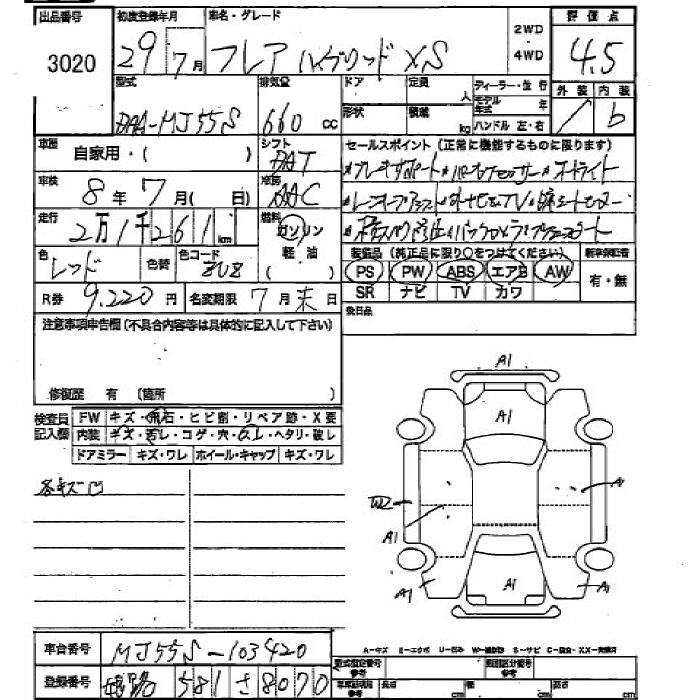 出品番号 初度登録年月 車名・グレード 2WD 4WD 評価点
3020 29 7月 フレア ハイブリッド XS 4.5
型式 排気量 ドア 定員 人 ディーラー・並行 外装 内装
DAA-MJ55S 660cc 形状 積載 kg モデル年式 年 ハンドル 左・右 b
車歴 自家用・( ) シフト DAT セールスポイント(正常に機能するものに限ります)
車検 8年7月( 日) 冷房 AAC
走行 2万1千261km 燃料 ガソリン 軽油
色 レッド 色替 色コード 装備品(純正品に限り○をつけてください) 新車保証書
PS PW ABS エアB AW 有・無
SR ナビ TV カワ
R券 9,220円 名変期限 7月末日 後日品
注意事項申告欄(不具合内容等は具体的に記入して下さい)
修復歴 有 (箇所 )
検査員記入欄 FW キズ・飛石・ヒビ割・リペア跡・X要
内装 キズ・汚レ・コゲ・穴・スレ・ヘタリ・破レ
ドアミラー キズ・ワレ ホイール・キャップ キズ・ワレ
各キズ凹
A1
A1
W2
A
A1
A1
A1
A1
A-キズ E-エクボ U-凹み W-補修跡 S-サビ C-腐食 XX-交換済
車台番号 MJ55S-103420
登録番号 姫路 581 さ 8070
型式指定番号 参考 類別区分番号 参考
長さ cm 幅 cm 高さ cm